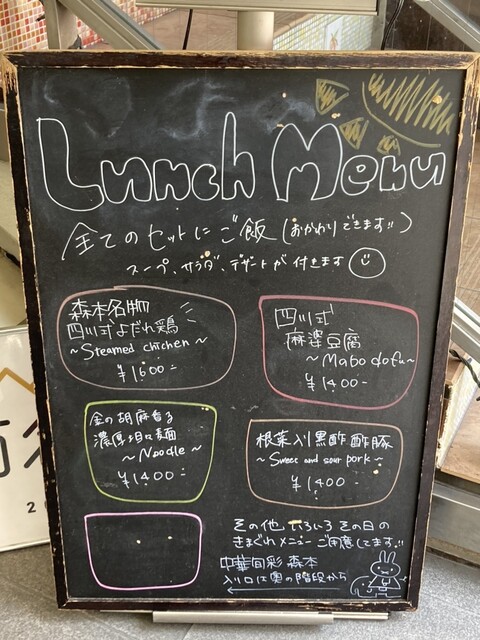 Lunch Menu
全てのセットにご飯(おかわりできます!!)
スープ、サラダ、デザートが付きます
森本名物
四川式よだれ鶏
~Steamed chicken~
¥1600-
四川式
麻婆豆腐
~Mabo dofu~
¥1400-
金の胡麻香る
濃厚坦々麺
~Noodle~
¥1400-
根菜入り黒酢酢豚
~Sweet and sour pork~
¥1400-
その他、いろいろその日の
きまぐれメニューご用意してます!!
中華旬彩 森本
入り口は奥の階段から